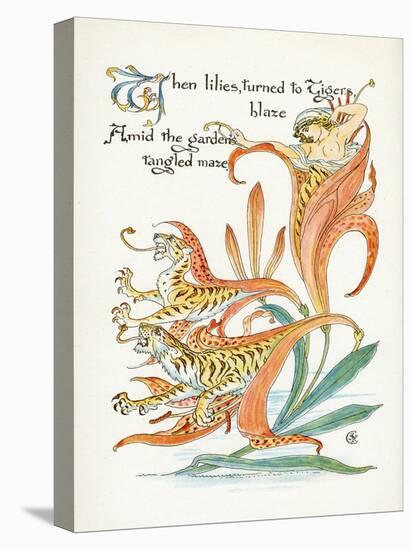 When lilies, turned to Tigers,
blaze
Amid the garden's
tangled maze